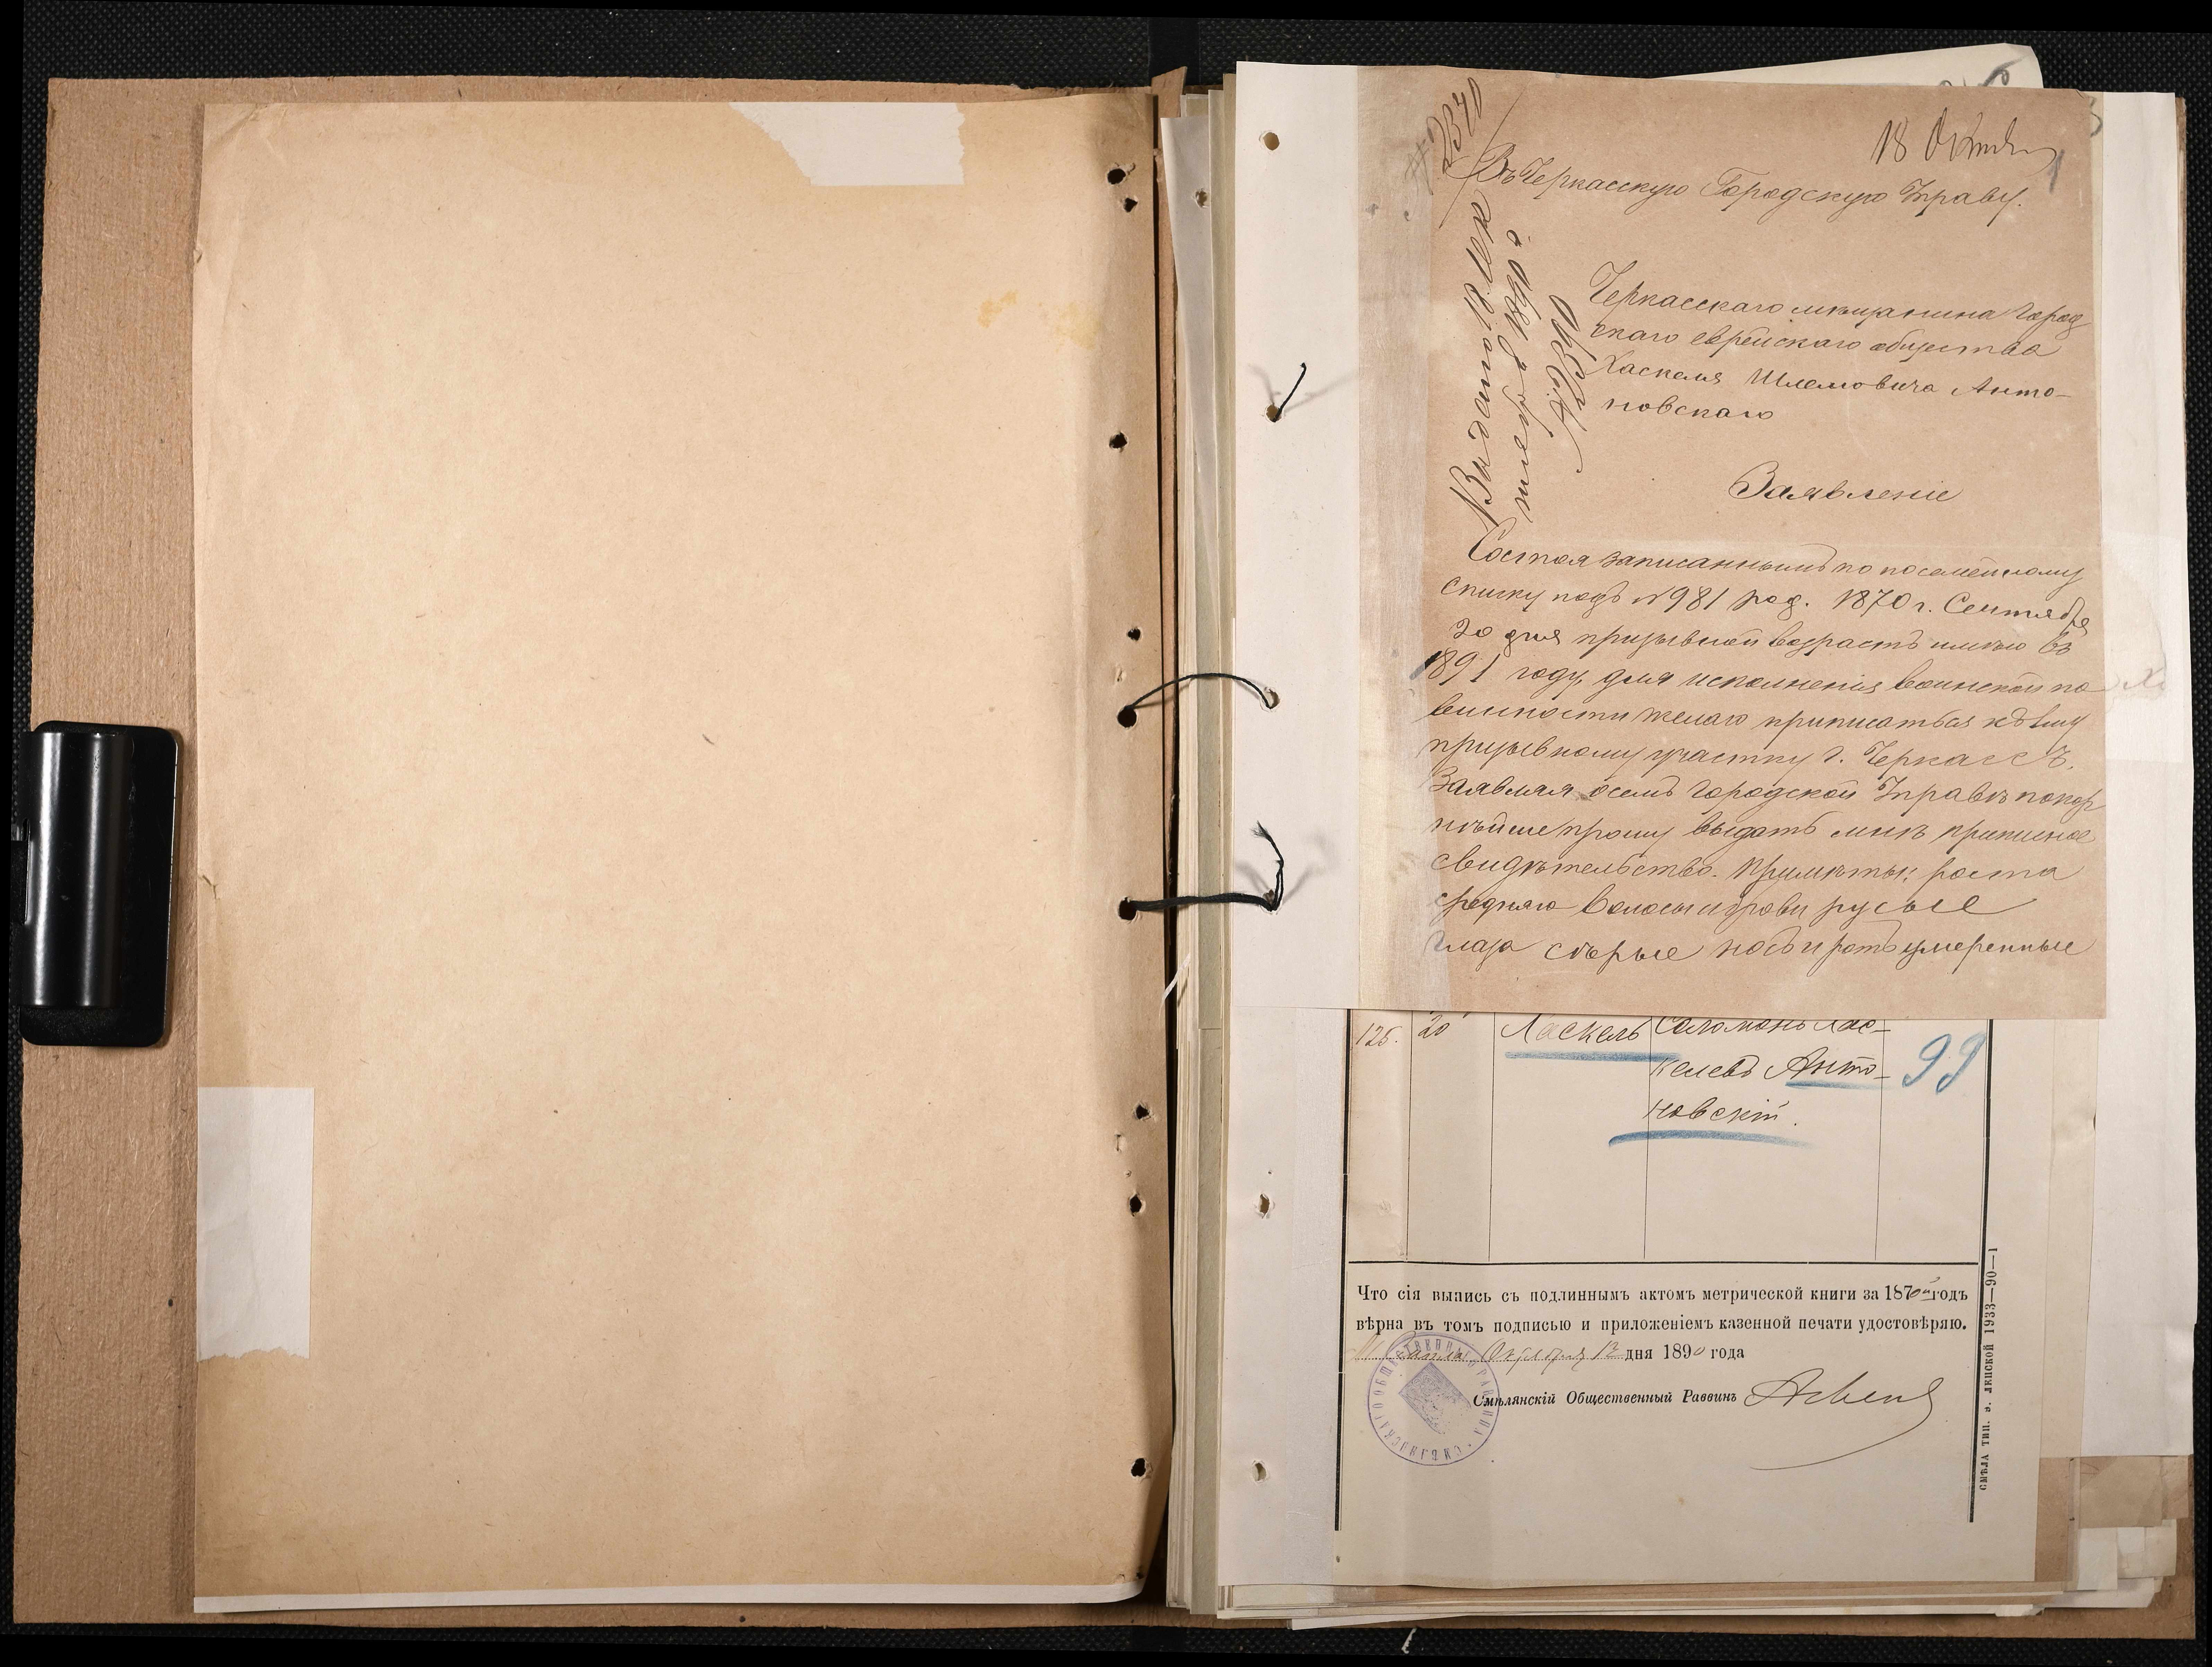 № 2370
18 Октяб
Въ Черкасскую Городскую Управу.
Черкасскаго мѣщанина Город
скаго еврейскаго общества
Хаскеля Шлемовича Анто-
новскаго
Заявленіе
Состоя записаннымъ по посемейному
списку подъ № 981 род. 1870 г. Сентября
20 дня призывной возрастъ имѣю въ
1891 году, для исполненія воинской по
винности желаю приписаться къ 1му
призывному участку г. Черкассъ.
Заявляя о семъ Городской Управѣ покор
нѣйше прошу выдать мнѣ приписное
свидѣтельство. Примѣты: роста
средняго волосы и брови русые
глаза сѣрые носъ и ротъ умеренные
Выдано 18 Ок
тября 1890 г.
125. 20 Хаскель Соломонъ Хас-
келевъ Анто-
новскій.
99
Что сія выпись съ подлиннымъ актомъ метрической книги за 1870й годъ
вѣрна въ томъ подписью и приложеніемъ казенной печати удостовѣряю.
М. Смѣла Октября 12 дня 1890 года
Смѣлянскій Общественный Раввинъ
СМѢЛЯНСКАГО ОБЩЕСТВЕННАГО РАВВИНА
СМѢЛА ТИП. Э. ЛЕПСКОЙ 1933—90—1